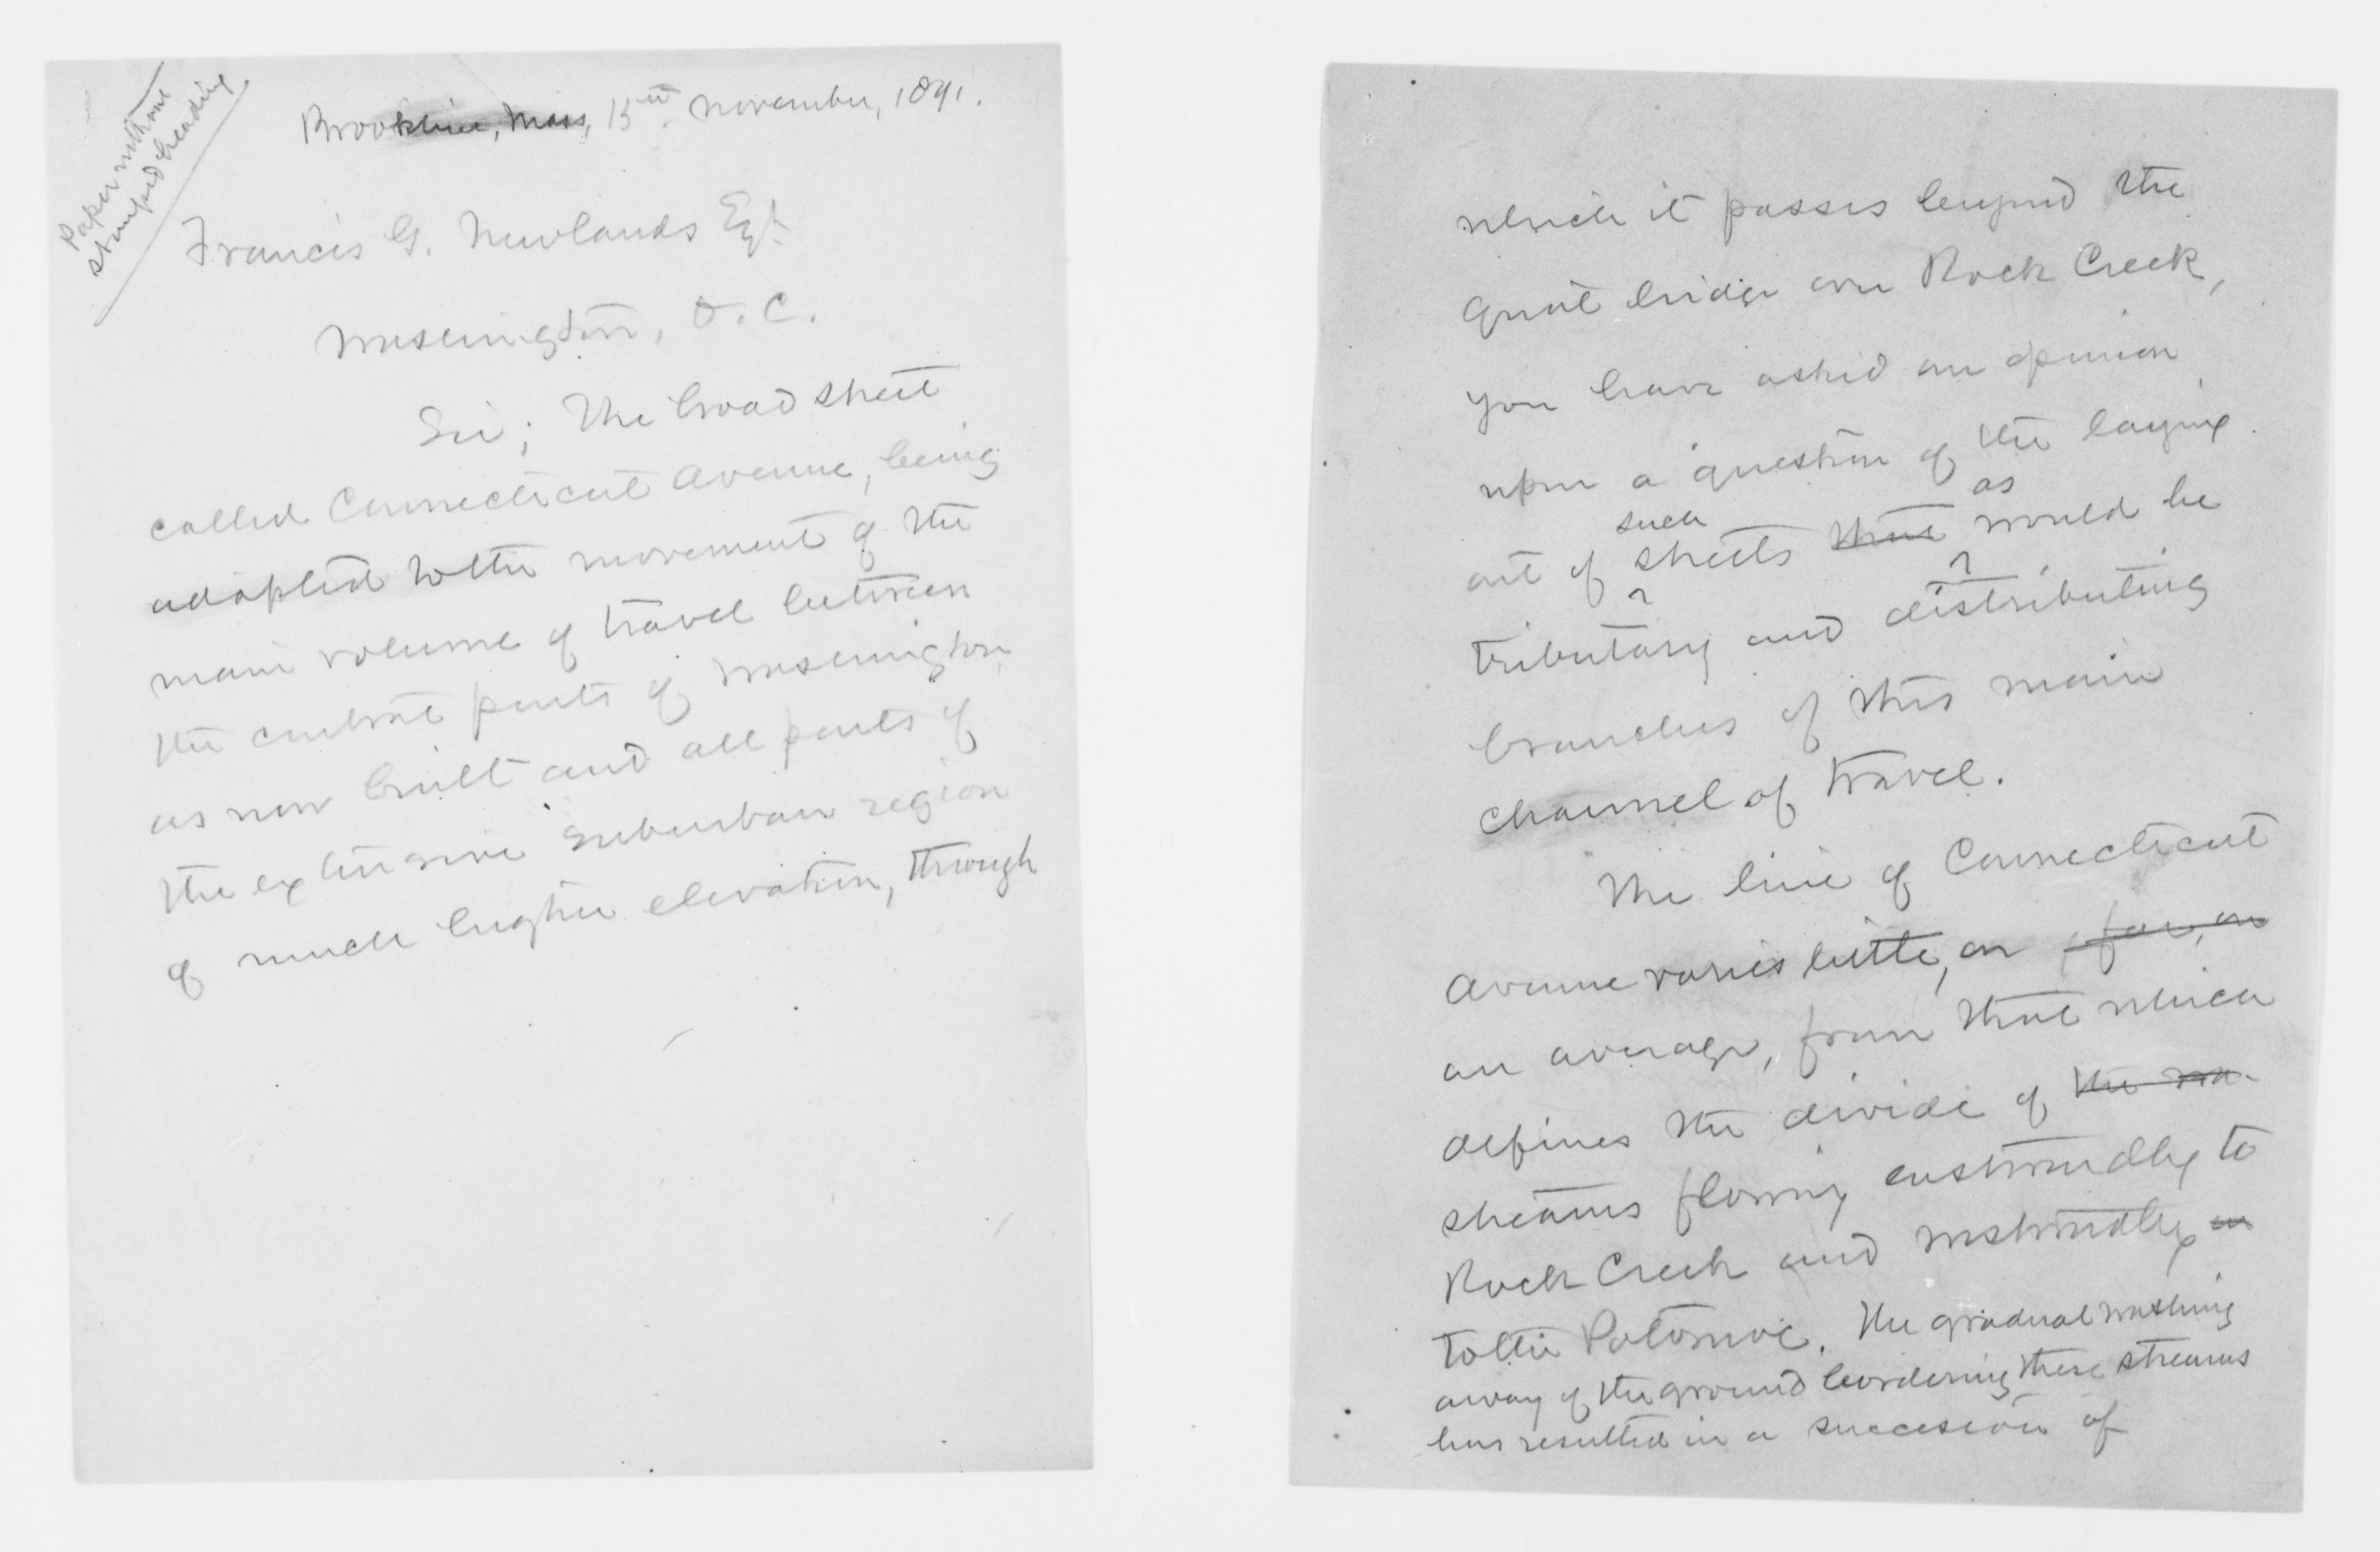 Paper without
stamped heading
Brookline, Mass, 15th November, 1891.
Francis G. Newlands Esqr
Washington, D.C.
Sir; The broad street
called Connecticut Avenue, being
adapted to the movement of the
main volume of travel between
the central parts of Washington
as now built and all parts of
the extensive suburban region
of much higher elevation, through
which it passes beyond the
great bridge over Rock Creek,
you have asked an opinion
upon a question of the laying
such as
out of streets that would be
tributary and distributing
branches of this main
channel of travel.
The line of Connecticut
Avenue varies little, on far, on
an average, from that which
defines the divide of the wa-
streams flowing eastwardly to
Rock Creek and westwardly
to the Potomac. The gradual washing
away of the ground bordering these streams
has resulted in a succession of